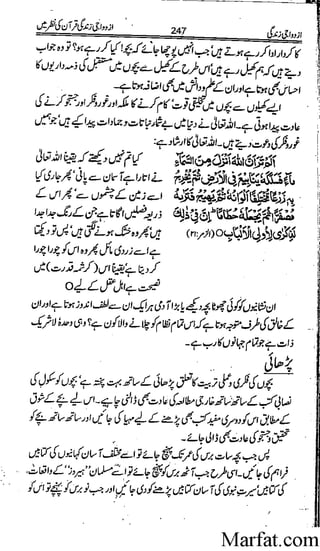 ازدواجی زندگی 247 ازدواجی زندگی قرآن کی نظر میں
کا کردار ادا کر رہے ہوتے ہیں جب انہیں پوچھا جائے کہ بچو! کیا کر رہے ہو؟ تو وہ جواب
دیتے ہیں کہ ہم کھیل رہے ہیں اس طرح کے کھیل سے بچوں میں مستقبل کی ذمہ داریوں کا
احساس بھی ہوتا ہے اور ان کے علم و دانش میں بھی اضافہ ہوتا ہے۔
ایسے کھیلوں سے بچوں میں تخلیقی قوت، کام کرنے کا ملکہ اور غور و فکر اور جستجو کرنے کی
عادت پیدا ہوتی ہے۔ اللہ تعالیٰ نے دنیا میں بے شمار نباتات و جمادات پیدا کیے ہیں جو ہمیں
غور و فکر کی دعوت دیتے ہیں۔ اللہ تعالیٰ کا ارشاد ہے:
اَلَمْ تَرَ اَنَّ اللّٰهَ اَنْزَلَ مِنَ السَّمَآءِ
مَآءً فَسَلَكَهٗ يَنَابِيْعَ فِي الْاَرْضِ ثُمَّ يُخْرِجُ
بِهٖ زَرْعًا مُّخْتَلِفًا اَلْوَانُهٗ ثُمَّ يَهِيْجُ فَتَرٰىهُ
مُصْفَرًّا ثُمَّ يَجْعَلُهٗ حُطَامًا ؕ اِنَّ فِيْ ذٰلِكَ
لَذِكْرٰى لِاُولِي الْاَلْبَابِ O (الزمر: ۲۱)
کیا تم نہیں دیکھتے کہ یقینا اللہ تعالیٰ
نے اتارا ہے آسمان سے پانی پھر جاری کیا
اسے زمین کے چشموں سے پھر اس کے
ذریعہ فصلیں اگاتا ہے جن کے رنگ جدا جدا
ہیں پھر وہ خشک ہونے لگتی ہیں پس تو دیکھتا
ہے اسے زردی مائل پھر وہ اس کو چورا چورا
کر دیتا ہے یقینا اس (کرشمہ قدرت) میں
نصیحت ہے اہل عقل کے لیے O
ان نشانیوں کو کوئی چھوٹا بچہ دیکھے یا بڑا آدمی ہر ایک ان سے لطف اندوز ہوتا ہے اور ان
کے خالق کی طرف متوجہ ہوتا ہے کہ اس تمام نظام کو چلانے والا کون ہے؟ وہی وحدہٗ لا شریک
ذات ہے جو تمام جہانوں کا رب ہے۔
پڑھائی
بچوں کی فکری و عملی تربیت کا تعلق پڑھائی کے ساتھ بہت پختہ ہے، بچوں کو سکول کی
نصابی کتب کے ساتھ ساتھ خارجی مطالعہ کی عادت بھی ڈالنی چاہیے۔ اس لیے بچے کے شوق
کے مطابق اس کو دوسری مفید کتب بھی پڑھنے کے لیے مہیا کی جائیں اور ساتھ ساتھ بچے کو
تحقیق و جستجو کی عادت بھی ڈالی جائے۔
پس جب بچہ سات برس کی عمر تک پہنچ جائے تو اسے مختلف آسان کہانیوں کی کتابیں
فراہم کی جائیں۔ اسی طرح جب آٹھ برس کو پہنچ جائے تو اسے مسلمان "ہیروز" کے واقعات
کی کتابیں، سیرت نبوی کی آسان کتابیں پڑھنے کو دی جائیں اور جب نو برس کو پہنچے تو اس کو
Marfat.com